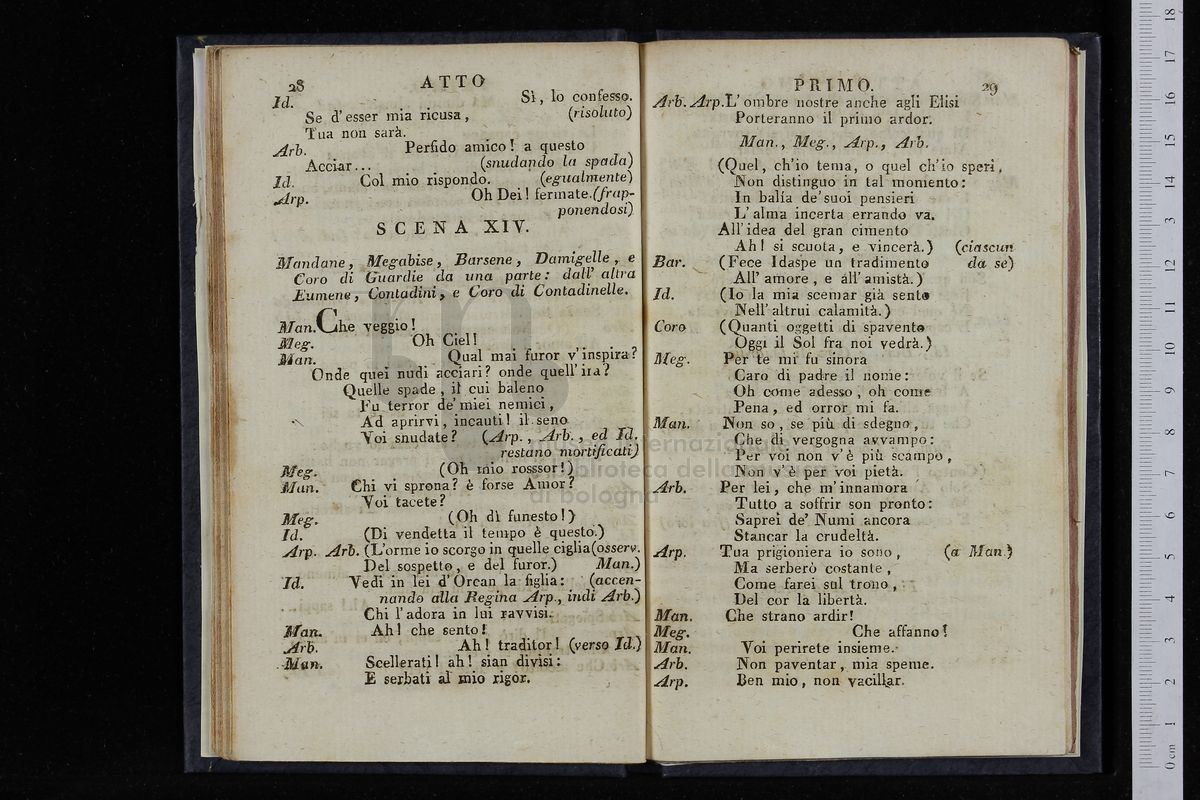 28 ATTO
Id. Sì, lo confesso.
Se d'esser mia ricusa, (risoluto)
Tua non sarà.
Arb. Perfido amico! a questo
Acciar... (snudando la spada)
Id. Col mio rispondo. (egualmente)
Arp. Oh Dei! fermate. (frap-
ponendosi)
SCENA XIV.
Mandane, Megabise, Barsene, Damigelle, e
Coro di Guardie da una parte: dall' altra
Eumene, Contadini, e Coro di Contadinelle.
Man. Che veggio!
Meg. Oh Ciel!
Man. Qual mai furor v'inspira?
Onde quei nudi acciari? onde quell'ira?
Quelle spade, il cui baleno
Fu terror de'miei nemici,
Ad aprirvi, incauti! il seno
Voi snudate? (Arp., Arb., ed Id.
restano mortificati)
Meg. (Oh mio rosssor!)
Man. Chi vi sprona? è forse Amor?
Voi tacete?
Meg. (Oh dì funesto!)
Id. (Di vendetta il tempo è questo.)
Arp. Arb. (L'orme io scorgo in quelle ciglia (osserv.
Del sospetto, e del furor.) Man.)
Id. Vedi in lei d'Orcan la figlia: (accen-
nando alla Regina Arp., indi Arb.)
Chi l'adora in lui ravvisi.
Man. Ah! che sento!
Arb. Ah! traditor! (verso Id.)
Man. Scellerati! ah! sian divisi:
E serbati al mio rigor.
PRIMO. 29
Arb. Arp. L'ombre nostre anche agli Elisi
Porteranno il primo ardor.
Man., Meg., Arp., Arb.
(Quel, ch'io tema, o quel ch'io speri,
Non distinguo in tal momento:
In balía de'suoi pensieri
L'alma incerta errando va.
All'idea del gran cimento
Ah! si scuota, e vincerà.) (ciascun
Bar. (Fece Idaspe un tradimento da se)
All' amore, e all'amistà.)
Id. (Io la mia scemar già sento
Nell'altrui calamità.)
Coro (Quanti oggetti di spavento
Oggi il Sol fra noi vedrà.)
Meg. Per te mi fu sinora
Caro di padre il nome:
Oh come adesso, oh come
Pena, ed orror mi fa.
Man. Non so, se più di sdegno,
Che di vergogna avvampo:
Per voi non v'è più scampo,
Non v'è per voi pietà.
Arb. Per lei, che m'innamora
Tutto a soffrir son pronto:
Saprei de' Numi ancora
Stancar la crudeltà.
Arp. Tua prigioniera io sono, (a Man.)
Ma serberò costante,
Come farei sul trono,
Del cor la libertà.
Man. Che strano ardir!
Meg. Che affanno!
Man. Voi perirete insieme.
Arb. Non paventar, mia speme.
Arp. Ben mio, non vacillar.